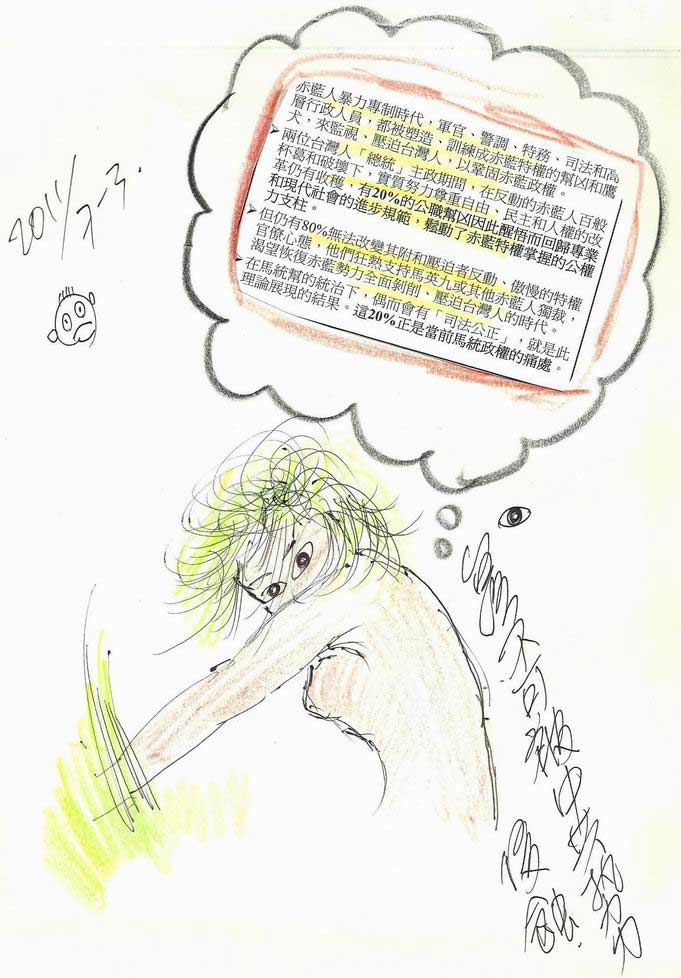 赤藍人暴力專制時代，軍官、警調、特務、司法和高
層行政人員，都被塑造、訓練成赤藍特權的幫凶和鷹
犬，來監視、壓迫台灣人，以鞏固赤藍政權。
➤ 兩位台灣人「總統」主政期間，在反動的赤藍人百般
杯葛和破壞下，實質努力尊重自由、民主和人權的改
革仍有收穫，有20%的公職幫凶因此醒悟而回歸專業
和現代社會的進步規範，鬆動了赤藍特權掌握的公權
力支柱。
➤ 但仍有80%無法改變其附和壓迫者反動、傲慢的特權
官僚心態，他們狂熱支持馬英九或其他赤藍人獨裁，
渴望恢復赤藍勢力全面剝削、壓迫台灣人的時代。
➤ 在馬統幫的統治下，偶而會有「司法公正」，就是此
理論展現的結果。這20%正是當前馬統政權的痛處。
2011/
不可被中共勢力
侵蝕